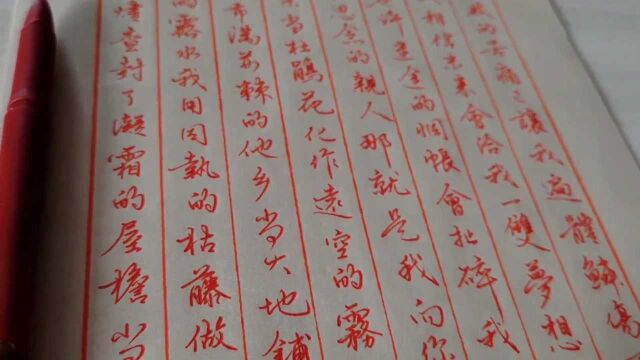 的苦痛之讓我遍體鱗傷
相信未來會給我一雙夢想
許遙遠的惆悵會扯碎我
思念的親人那就是我向你
當杜鵑花化作遠空的霧
布滿荊棘的他乡当大地鋪
的露水我用固執的枯藤做
情查封了凝霜的屋檐当